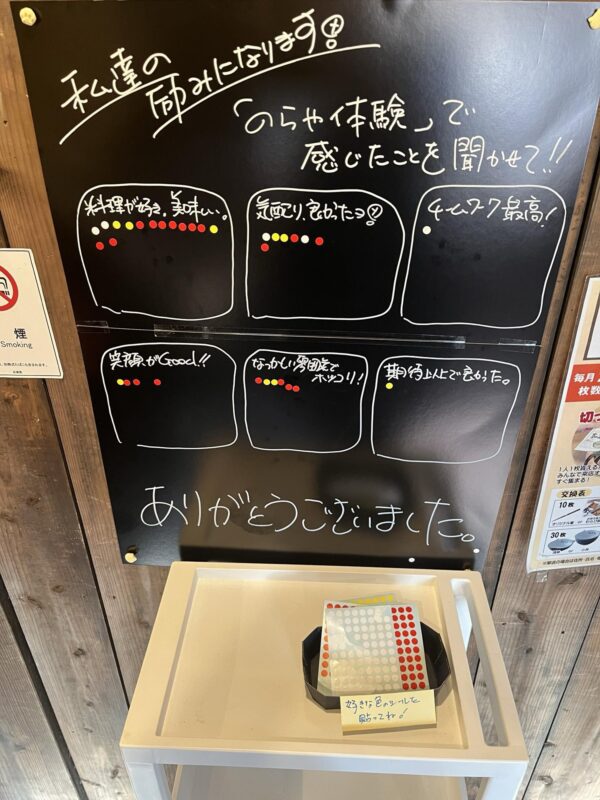 私達の
励みになります!
「のらや体験」で
感じたことを聞かせて!!
料理が好き。美味しい。
気配り、良かったヨ!
チームワーク最高!
笑顔がGood!!
なつかしい雰囲気で
ホッコリ!
期待以上で良かった。
ありがとうございました。
好きな色のシールを
貼ってね!
煙
Smoking
毎月
枚数
切っ
1人1枚貰える
みんなで来店
すぐ集まる!
交換表
10枚
30枚